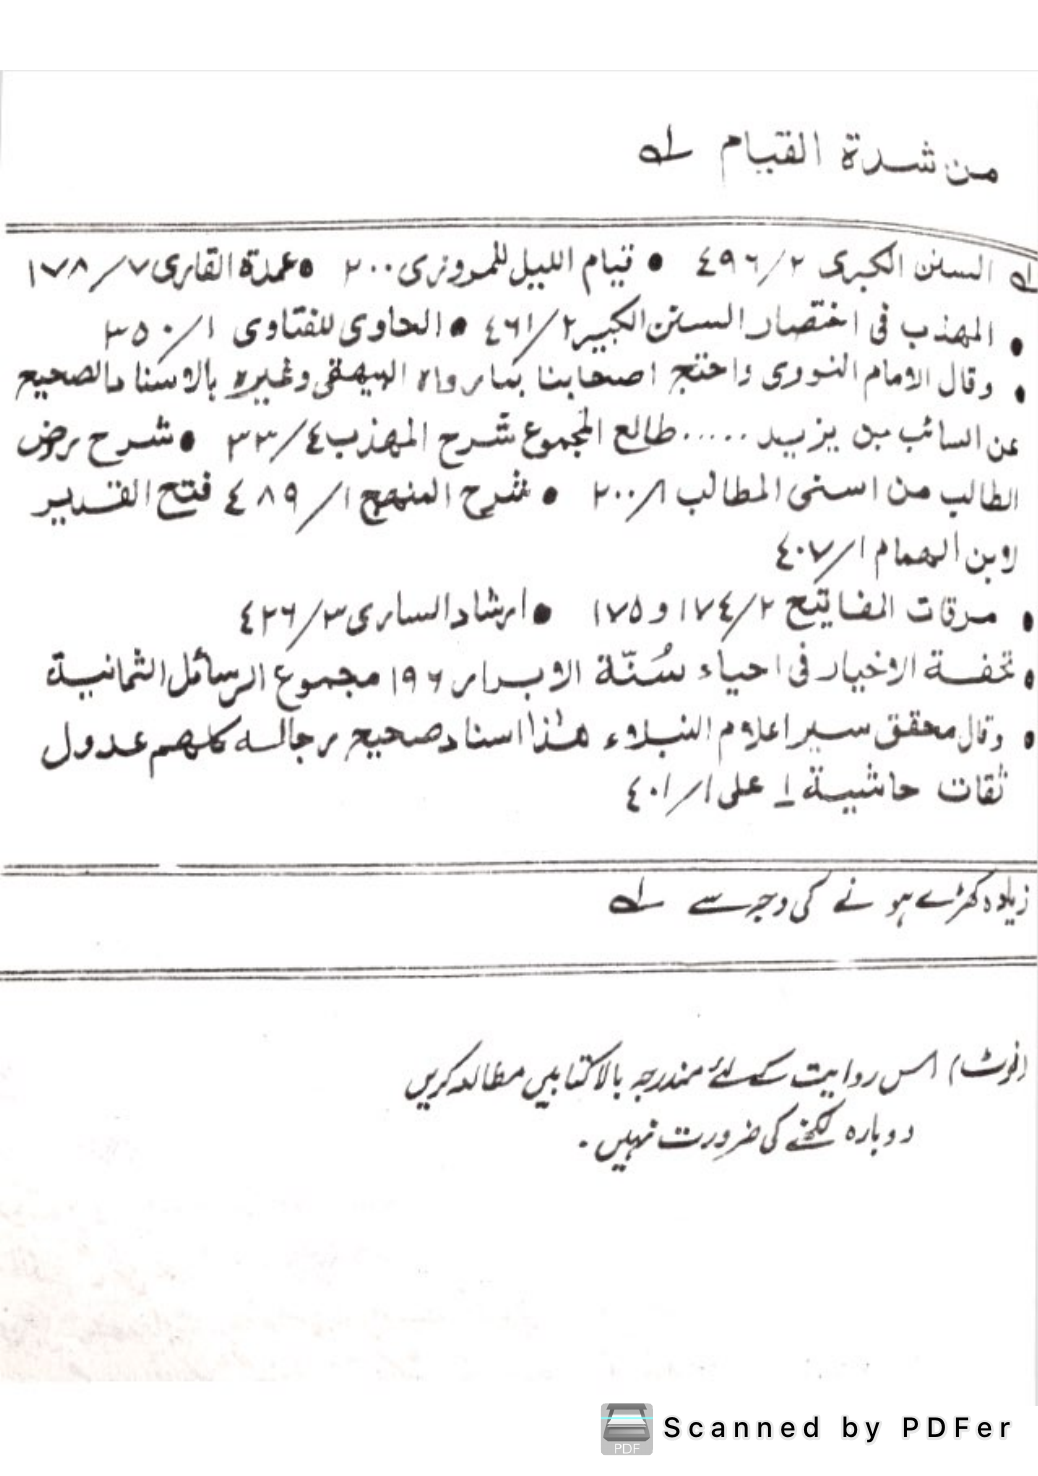 من شدۃ القیام لہ
لہ السنن الکبری ۲/۴۹۶ • قیام اللیل للمروزی ۲۰۰ • عمدۃ القاری ۷/۱۷۸
• المھذب فی اختصار السنن الکبیر ۲/۴۶۱ • الحاوی للفتاوی ۱/۳۵۰
• وقال الامام النووی واحتج اصحابنا بما رواہ البیھقی وغیرہ بالاسناد الصحیح
عن السائب بن یزید ..... طالع المجموع شرح المھذب ۴/۳۳ • شرح روض
الطالب من اسنی المطالب ۱/۲۰۰ • شرح المنھج ۱/۴۸۹ فتح القدیر
لابن الھمام ۱/۴۰۷
• مرقات المفاتیح ۲/۱۷۴ و ۱۷۵ • ارشاد الساری ۳/۴۲۶
• تحفۃ الاخیار فی احیاء سُنّۃ الابرار ۱۹۶ مجموع الرسائل الثمانیۃ
• وقال محقق سیر اعلام النبلاء ھٰذا اسناد صحیح رجالہ کلھم عدول
ثقات حاشیۃ ۱ علی ۱/۴۰۱
زیادہ کھڑے ہونے کی وجہ سے لہ
(نوٹ) اس روایت کے لئے مندرجہ بالا کتابیں مطالعہ کریں
دوبارہ لکھنے کی ضرورت نہیں ۔
PDF
Scanned by PDFer